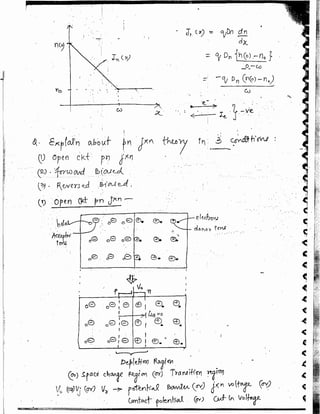 n(x)
Jn (x)
n₀
ω
x
Jn (x) = qDn dn/dx
= q Dn {n(o) - n₀}
0-ω
= -q Dn (n(o) - n₀)
ω
e⁻
In
} -ve
Q. Explain about pn jxn theory in 3 conditions:
(1) Open ckt pn jxn
(2) - Forward Biased
(3) - Reversed Biased.
(1) Open Ckt pn Jxn —
hole
Acceptor
ions
electrons
donor ions
V₀
P n
Depletion Region
(or) Space charge Region (or) Transition region
(or) Vj (or) V₀ → potential Barrier (or) jxn voltage (or)
Contact potential (or) Cut in voltage